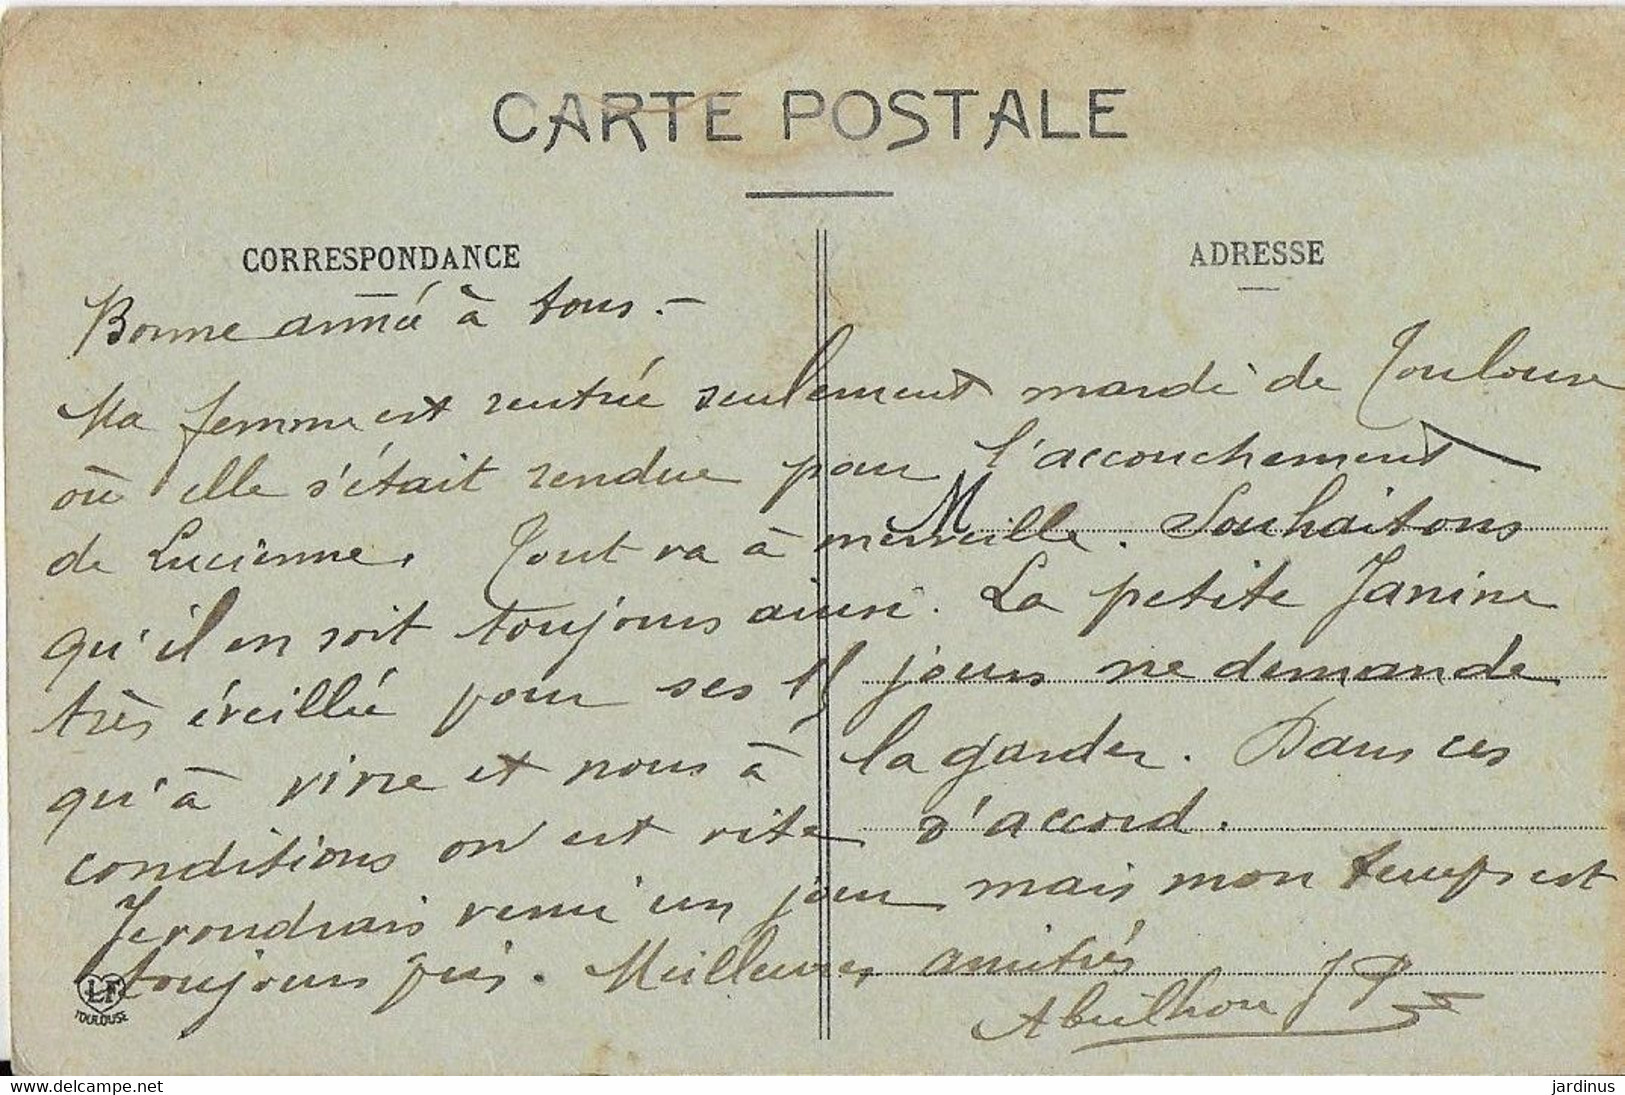 CARTE POSTALE
CORRESPONDANCE
ADRESSE
Bonne année à tous. –
Ma femme est rentrée seulement mardi de Toulouse
où elle s'était rendue pour l'accouchement
de Lucienne. Tout va à merveille. Souhaitons
qu'il en soit toujours ainsi. La petite Janine
très éveillée pour ses 15 jours ne demande
qu'à vivre et nous à la garder. Dans ces
conditions on est vite d'accord.
Je voudrais venir un jour mais mon temps est
toujours pris. Meilleures amitiés
Abeilhou JP
LF
TOULOUSE
www.delcampe.net
jardinus